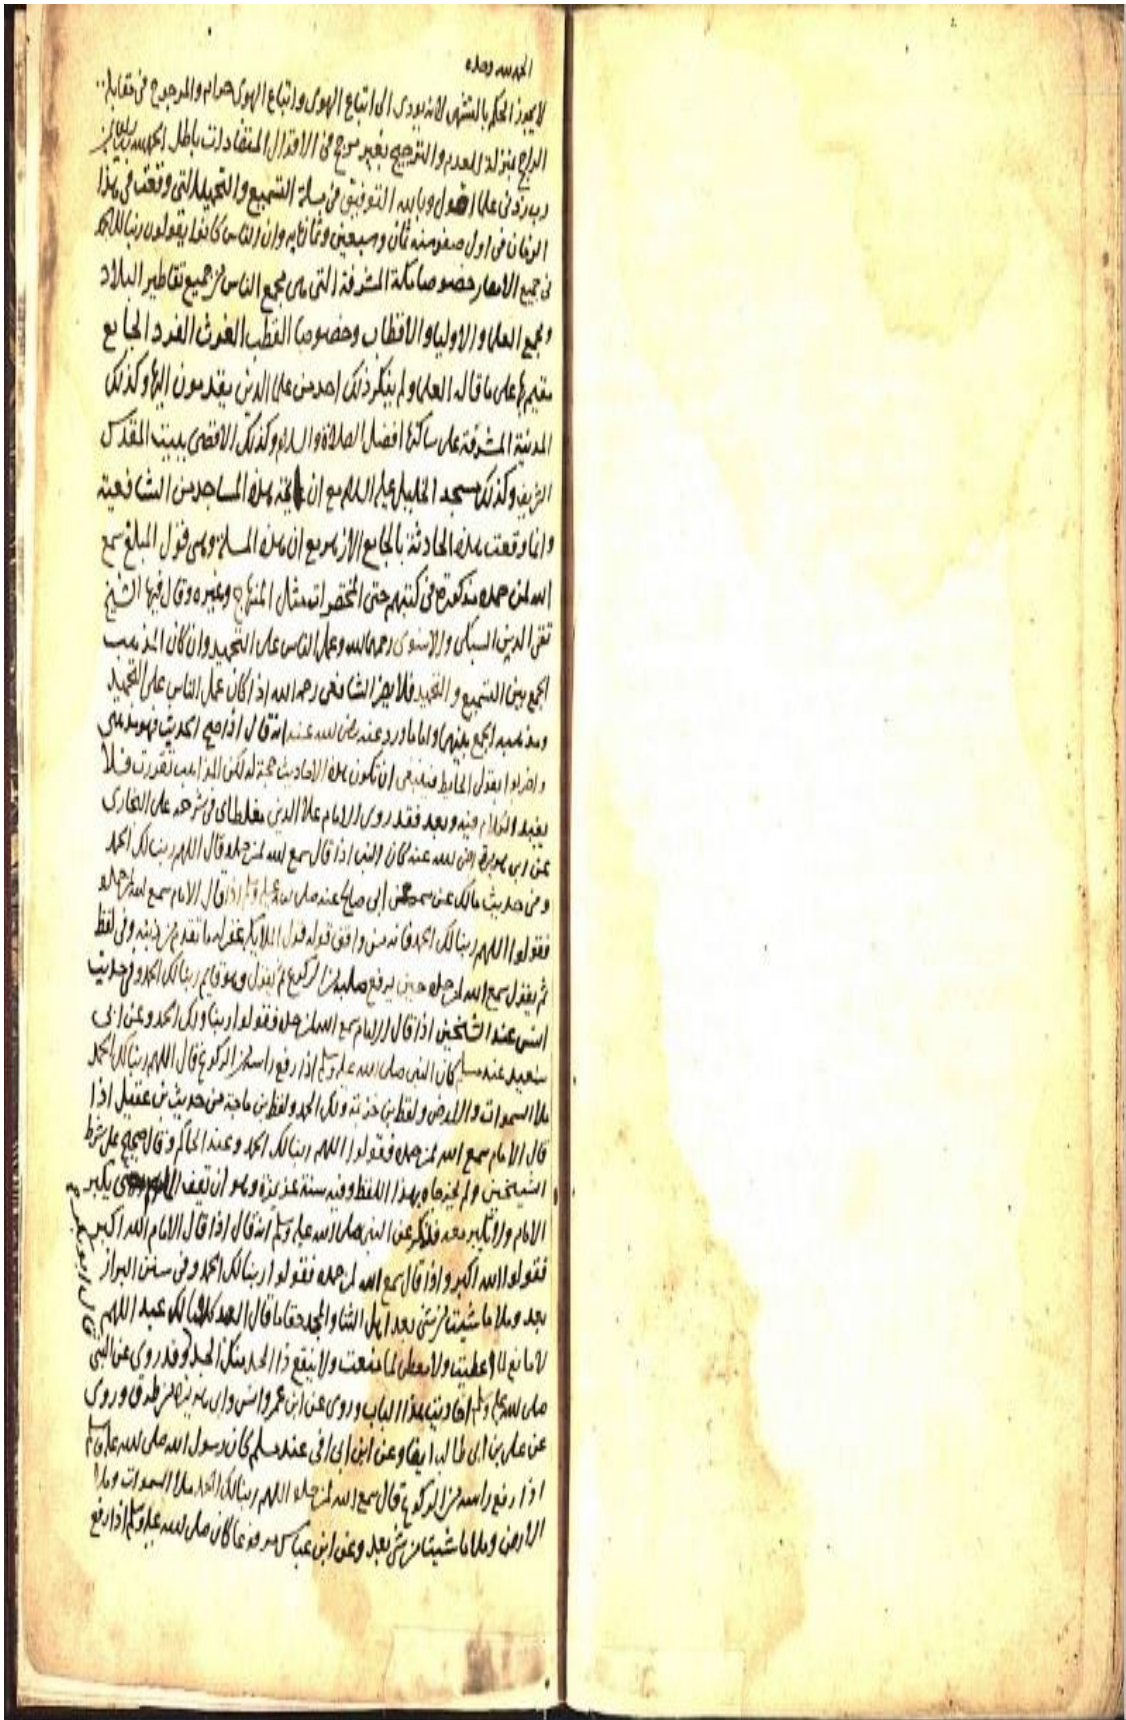 الحمد لله وحده
لا يجوز الحكم بالتشهي لانه يودى الى اتباع الهوى واتباع الهوى حرام والمرجوح فى مقابلة
الراجح بمنزلة العدم والترجيح بغير مرجح فى الاقوال المتضادات باطل الحمد لله
رب زدنى علما اقول وبالله التوفيق فى مسلة التسميع والتحميد التى وقعت فى هذا
الزمان فى اول صفر سنة ثمان وسبعين وثمانمايه وان الناس كانوا يقولون ربنا لك الحمد
فى جميع الامصار خصوصا مكة المشرفة التى هى مجمع الناس من جميع البلاد
ومجمع العلما والاوليا والاقطاب وخصوصا القطب الغوث الفرد الجامع
مقيم بها على ما قاله العلما ولم ينكر ذلك احد من علما الذين يقدمون اليها وكذلك
المدينة المشرفة على ساكنها افضل الصلاة والسلام وكذلك الاقصى ببيت المقدس
الشريف وكذلك مسجد الخليل عليه السلام مع ان ايمة هذه المساجد من الشافعية
وانما وقعت هذه الحادثة بالجامع الازهر مع ان هذه المسلة وهى قول المبلغ سمع
الله لمن حمده مذكورة فى كتبهم حتى المختصرات مثل المنهاج وغيره وقال فيها الشيخ
تقى الدين السبكى والاسنوى رحمهما الله وعمل الناس على التحميد وان كان المذهب
الجمع بين التسميع والتحميد فلا يضر الشافعى رحمه الله اذا كان عمل الناس على التحميد
ومذهبه الجمع بينهما واما ما ورد عنه رضى الله عنه انه قال اذا صح الحديث فهو مذهبى
واضربوا بقولى الحايط فينبغى ان تكون هذه الاحاديث حجة له لكن المذاهب تقررت فلا
يفيد الكلام فيه وبعد فقد روى الامام علا الدين مغلطاى فى شرحه على البخارى
عن ابى هريرة رضى الله عنه كان النبى اذا قال سمع الله لمن حمده قال اللهم ربنا لك الحمد
وفى حديث مالك عن سمى عن ابى صالح عنه صلى الله عليه وسلم اذا قال الامام سمع الله لمن حمده
فقولوا اللهم ربنا لك الحمد فانه من وافق قوله قول الملايكة غفر له ما تقدم من ذنبه وفى لفظ
ثم يقول سمع الله لمن حمده حين يرفع صلبه من الركوع ثم يقول وهو قايم ربنا لك الحمد وفى حديث
انس عند الشيخين اذا قال الامام سمع الله لمن حمده فقولوا ربنا ولك الحمد وعن ابى
سعيد عند مسلم كان النبى صلى الله عليه وسلم اذا رفع راسه من الركوع قال اللهم ربنا لك الحمد
ملا السموات والارض ولفظ بن خزيمة ولك الحمد ولفظ بن ماجة من حديث بن عقيل اذا
قال الامام سمع الله لمن حمده فقولوا اللهم ربنا لك الحمد وعند الحاكم وقال صحيح على شرط
الشيخين ولم يخرجاه بهذا اللفظ وفيه سنة عزيزة وهو ان يقف حتى يكبر
الامام ولا يكبر معه عن النبى صلى الله عليه وسلم انه قال اذا قال الامام الله اكبر
فقولوا الله اكبر واذا قال سمع الله لمن حمده فقولوا ربنا لك الحمد وفى سنن البزار
بعد وملا ما شيت من شى بعد اهل الثنا والمجد حقا ما قال العبد كلنا لك عبد اللهم
لا مانع لما اعطيت ولا معطى لما منعت ولا ينفع ذا الجد منك الجد وقد روى عن النبى
صلى الله عليه وسلم احاديث بهذا الباب وروى عن ابن عمر وانس وابى هريرة من طرق وروى
عن على بن ابى طالب ايضا وعن ابن ابى اوفى عند مسلم كان رسول الله صلى الله عليه وسلم
اذا رفع راسه من الركوع قال سمع الله لمن حمده اللهم ربنا لك الحمد ملا السموات وملا
الارض وملا ما شيت من شى بعد وعن ابن عباس مرفوعا كان صلى الله عليه وسلم اذا رفع